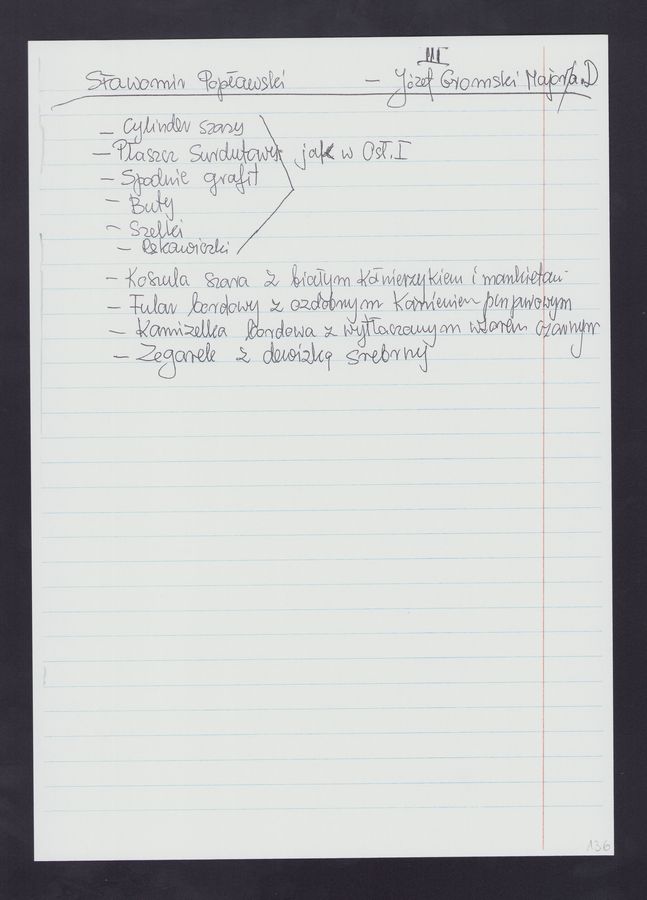 III
Sławomir Popławski - Józef Gromski Major
- Cylinder szary
- Płaszcz Surdutowy jak w Ost. I
- Spodnie grafit
- Buty
- Szelki
- Rękawiczki
- Koszula szara z białym kołnierzykiem i mankietami
- Fular bordowy z ozdobnym kamieniem purpurowym
- Kamizelka bordowa z wytłaczanym wzorem czarnym
- Zegarek z dewizką srebrny
136